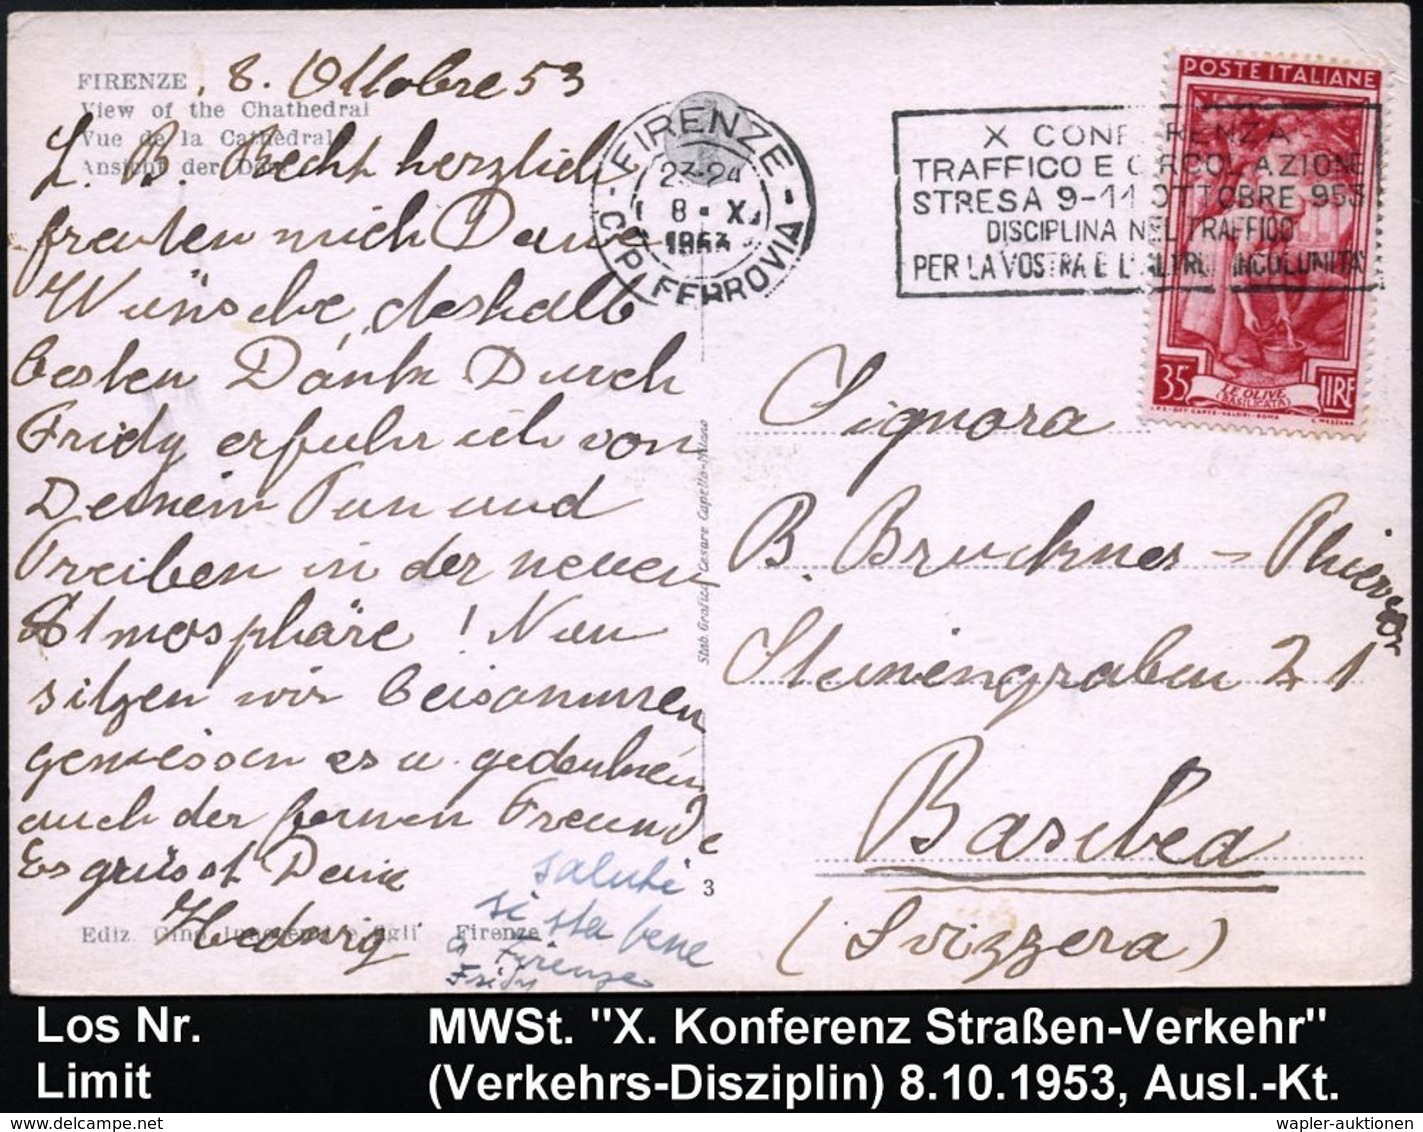 FIRENZE, 8. Ottobre 53
View of the Chathedral
Vue de la Cathédrale
Ansicht der
L. B. Recht herzlich
freuten mich Deine
Wünsche, deshalb
besten Dank. Durch
Fridy erfuhr ich von
Deinem Tun und
Treiben in der neuen
Atmosphäre! Nun
sitzen wir beisammen
geniessen es u. gedenken
auch der fernen Freunde
Es grüsst Deine
Hedwig
saluti
si sta bene
a Firenze
Fridy
Ediz. Gino e Figli Firenze
3
Stab. Grafico Cesare Capello-Milano
FIRENZE
23-24
8 - X
1953
C.P. FERROVIA
X CONFERENZA
TRAFFICO E CIRCOLAZIONE
STRESA 9-11 OTTOBRE 953
DISCIPLINA NEL TRAFFICO
PER LA VOSTRA E L'ALTRUI INCOLUMITA'
POSTE ITALIANE
35 LIRE
LE OLIVE
(BASILICATA)
I.P.S.-OFF. CARTE-VALORI-ROMA
C. MEZZANA
Signora
B. Bruckner-
Steinengraben 21
Basilea
(Svizzera)
Los Nr.
Limit
MWSt. "X. Konferenz Straßen-Verkehr"
(Verkehrs-Disziplin) 8.10.1953, Ausl.-Kt.
wapler-auktionen